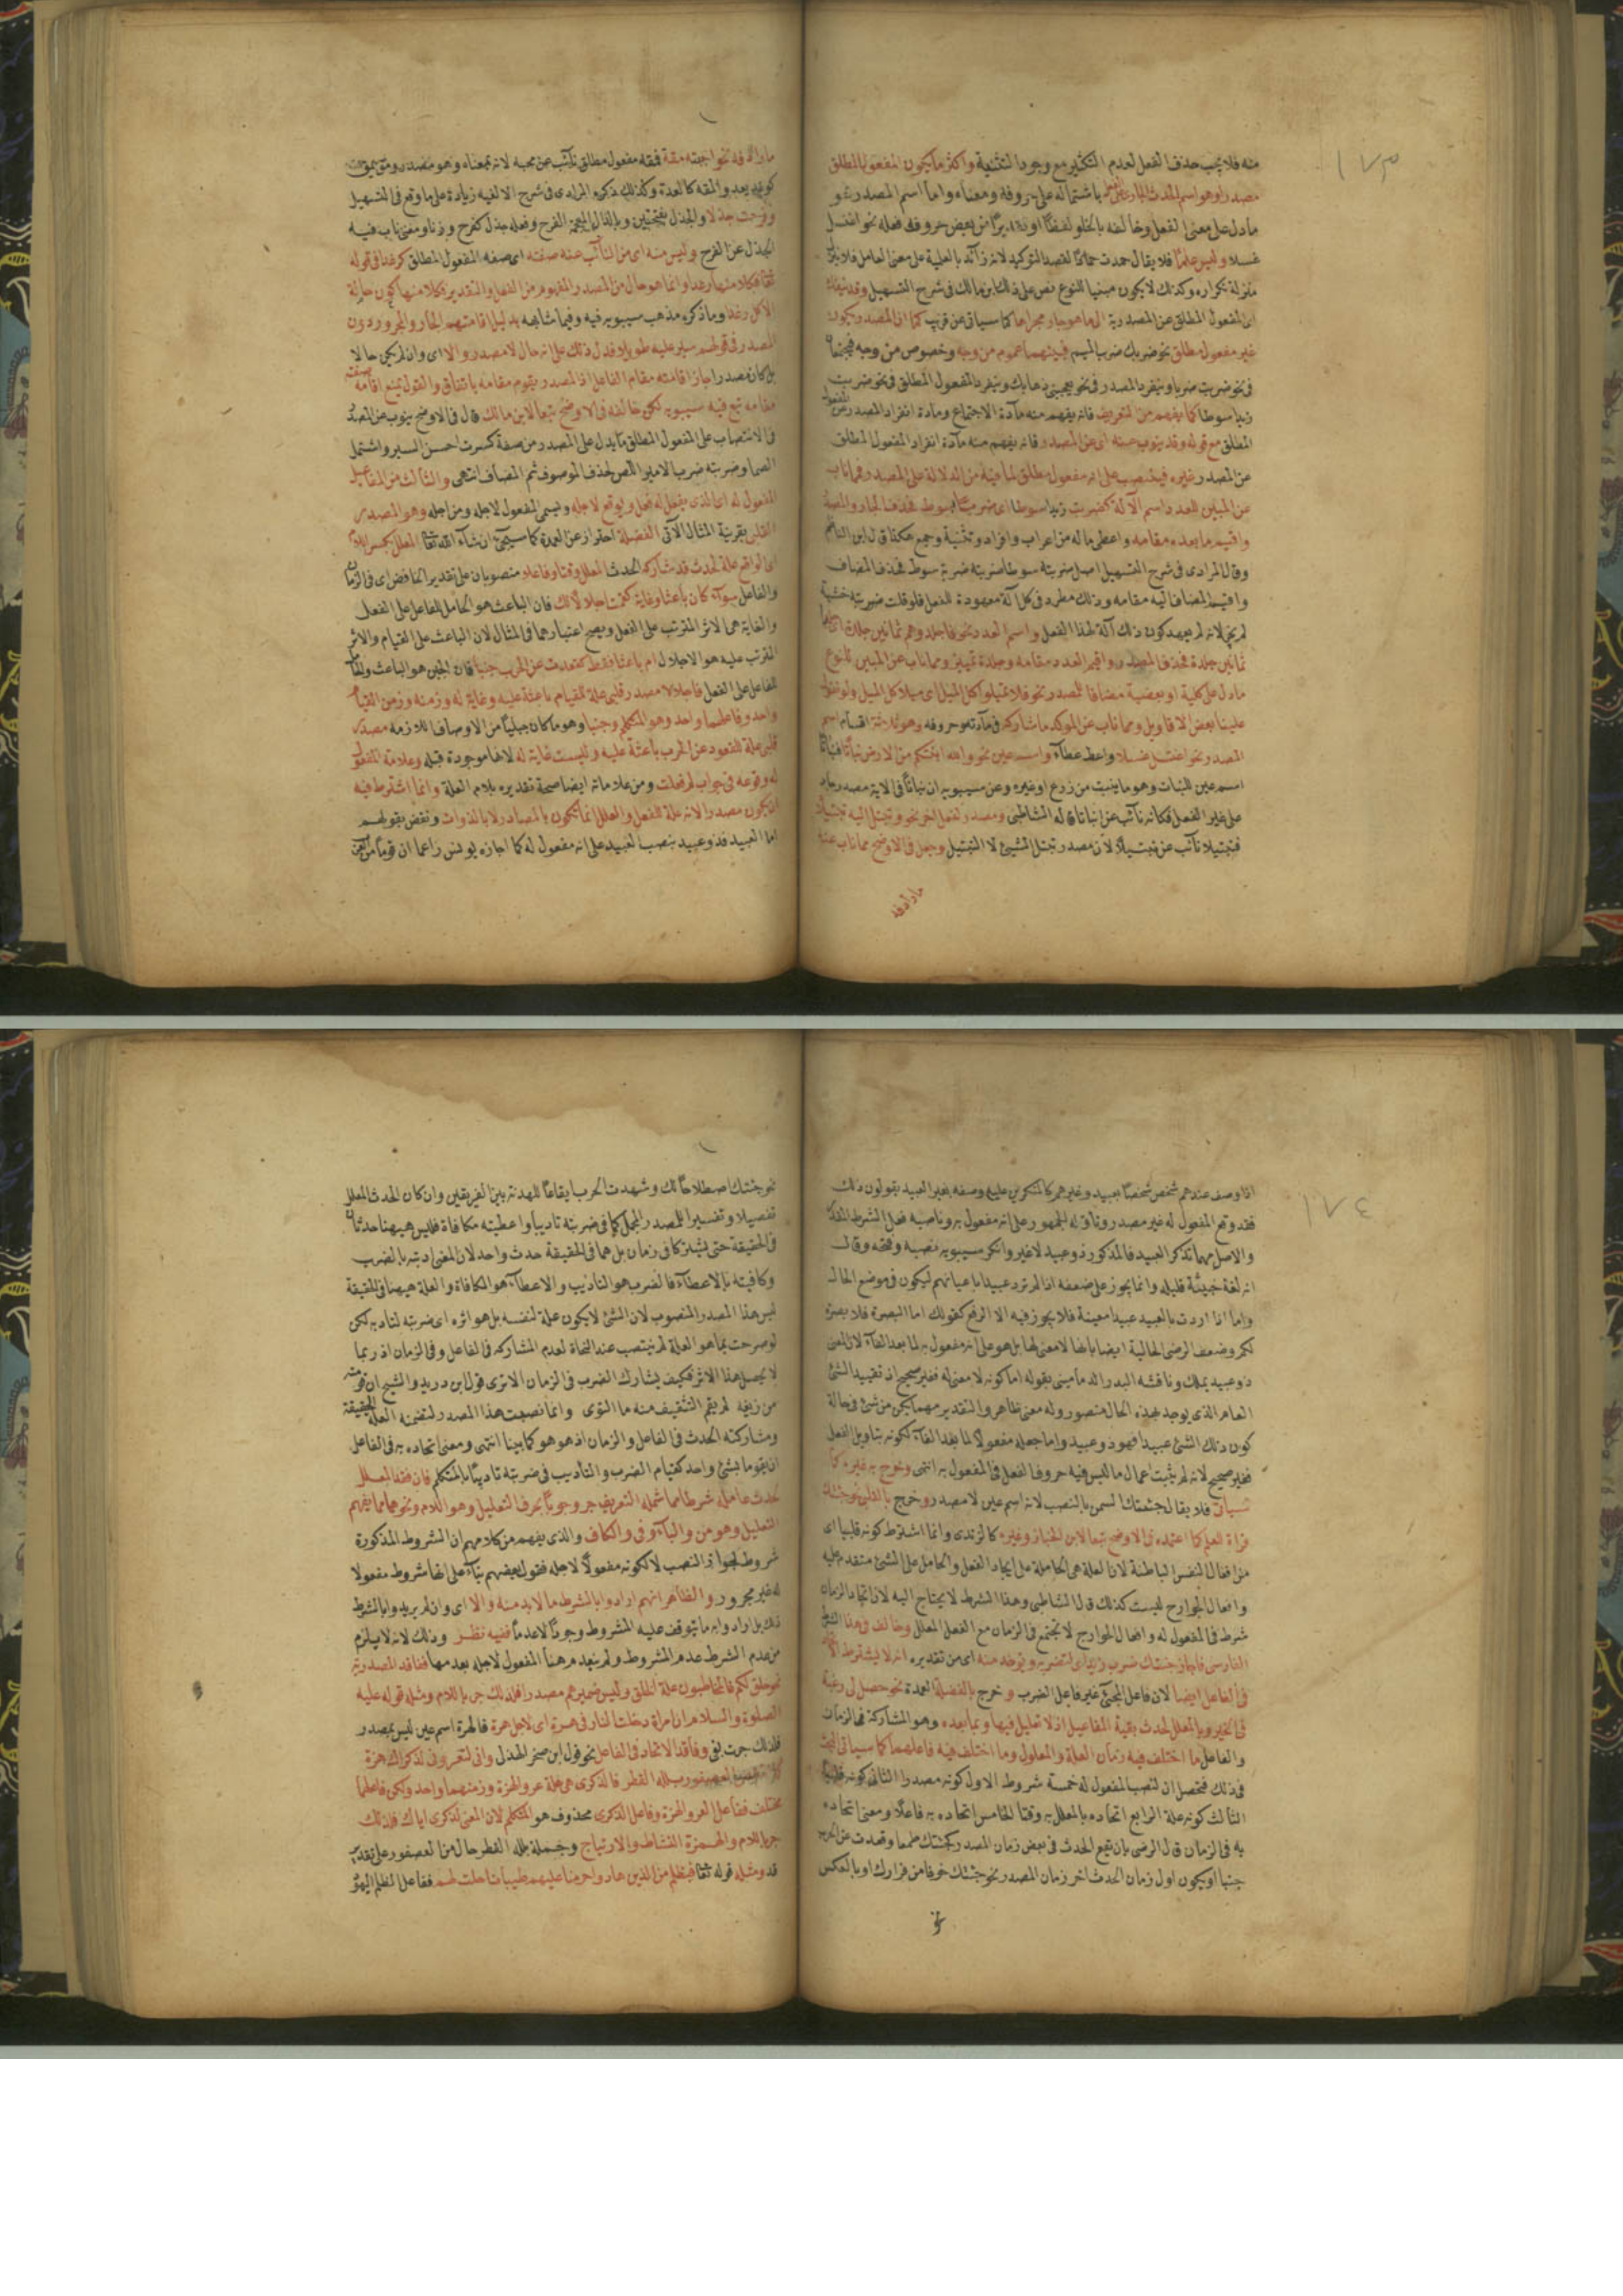 ١٧٣
منه فلا يجب حذف الفعل لعدم التكثير مع وجود التثنية واكثر ما يكون المفعول المطلق
مصدرا وهو اسم الحدث الجاري على الفعل باشتماله على حروفه ومعناه واما اسم المصدر فهو
ما دل على معنى الفعل وخالفه بالخلو لفظا او من بعض حروف فعله نحو اغتسل
غسلا وليس علما فلا يقال حمدت حماد لقصد التوكيد لانه زائد بالعلمية على معنى العامل فلا ينزل
منزلة تكراره وكذلك لا يكون مبينا للنوع نص على ذلك ابن مالك في شرح التسهيل وقد
المفعول المطلق عن المصدرية الى ما هو جار مجراها كما سياتي عن قريب كما ان المصدر يكون
غير مفعول مطلق نحو ضربك ضرب اليم فبينهما عموم من وجه وخصوص من وجه فيجتمعان
في نحو ضربت ضربا وينفرد المصدر في نحو يعجبني ذهابك وينفرد المفعول المطلق في نحو ضربت
زيدا سوطا كما يفهم من التعريف فانه يفهم منه مادة الاجتماع ومادة انفراد المصدر عن المفعول
المطلق مع قوله وقد ينوب عنه اى عن المصدر فانه يفهم منه مادة انفراد المفعول المطلق
عن المصدر غيره فينصب على انه مفعول مطلق لما فيه من الدلالة على المصدر فمما ناب
عن المبين للعدد اسم الآلة كضربت زيدا سوطا اى ضربا بسوط فحذف الجار والمصدر
واقيم ما بعده مقامه واعطى ما له من اعراب وافراد وتثنية وجمع هكذا قال ابن الناظم
وقال المرادى في شرح التسهيل اصل ضربته سوطا ضربته ضربة سوط فحذف المضاف
واقيم المضاف اليه مقامه وذلك مطرد في كل آلة معهودة للفعل فلو قلت ضربته خشبة
لم يجز لانه لم يعهد كون ذلك آلة لهذا الفعل واسم العدد نحو فاجلدوهم ثمانين جلدة
ثمانين جلدة فحذف المصدر واقيم العدد مقامه وجلدة تمييز ومما ناب عن المبين للنوع
ما دل على كلية او بعضية مضافا للمصدر نحو فلا تميلوا كل الميل اى ميلا كل الميل ولو تقول
علينا بعض الاقاويل ومما ناب عن الموكد ما شاركه في مادته وحروفه وهو ثلاثة اقسام اسم
المصدر نحو اغتسل غسلا واعط عطاء واسم عين نحو والله انبتكم من الارض نباتا فنباتا
اسم عين للنبات وهو ما ينبت من زرع او غيره وعن سيبويه ان نباتا في الاية مصدر جار
على غير الفعل فكانه نائب عن انباتا قاله الشاطبي ومصدر لفعل اخر نحو وتبتل اليه تبتيلا
فتبتيلا نائب عن تبتلا لان مصدر تبتل التبتل لا التبتيل وجعل في الاوضح مما ناب عنه
مارادفه
مارادفه نحو احببته مقة فمقة مفعول مطلق نائب عن محبة لانه بمعناه وهو مصدر ومق يمق
كوعد يعد والمقة كالعدة وكذلك ذكره المرادى في شرح الالفيه زيادة على ما وقع في التسهيل
وفرحت جذلا والجذل بفتحتين وبالذال المعجمة الفرح وفعله جذل كفرح وزنا ومعنى ناب فيه
الجذل عن الفرح وليس منه اى من النائب عنه صفته اى صفة المفعول المطلق كرغدا في قوله
تعالى فكلا منها رغدا وانما هو حال من المصدر المفهوم من الفعل والتقدير فكلا منها كون حالة
الاكل رغدا وما ذكره مذهب سيبويه فيه وفيما شابهه بدليل اقامتهم الجار والمجرور دون
المصدر في قولهم سير عليه طويلا فدل ذلك على انه حال لا مصدر والا اى وان لم يكن حالا
بل كان مصدرا جاز اقامته مقام الفاعل اذ المصدر يقوم مقامه باتفاق والقول بمنع اقامة صفته
مقامه تبع فيه سيبويه لكن خالفه في الاوضح تبعا لابن مالك قال في الاوضح ينوب عن المصدر
في الانتصاب على المفعول المطلق ما يدل على المصدر من صفة كسرت احسن السير واشتمل
الصما وضربته ضرب الامير اللص لحذف الموصوف ثم المضاف انتهى والثالث من المفاعيل
المفعول له اى الذى يفعل له فعل ويوقع لاجله ويسمى المفعول لاجله ومن اجله وهو المصدر
القلبي بقرينة المثال الآتي الفضلة احتراز عن العمدة كما سيجيء ان شاء الله تعالى المعلل بكسر اللام
اى الواقع علة لحدث قد شاركه الحدث المعلل وقتا وفاعلا منصوبان على تقدير الخافض اى في الزمان
والفاعل سواء كان باعثا وغاية كقمت اجلالا لك فان الباعث هو الحامل للفاعل على الفعل
والغاية هى الاثر المترتب على الفعل ويصح اعتبارهما في المثال لان الباعث على القيام والاثر
المترتب عليه هو الاجلال ام باعثا فقط كقعدت عن الحرب جبنا فان الجبن هو الباعث
للفاعل على الفعل فاجلالا مصدر قلبي علة للقيام باعثة عليه وغاية له وزمنه وزمن القيام
واحد وفاعلهما واحد وهو المتكلم وجبنا وهو ما كان جبليا من الاوصاف اللازمة مصدر
قلبي علة للقعود عن الحرب باعثة عليه وليست غاية له لانها موجودة قبله وعلامة المفعول
له وقوعه في جواب لم فعلت ومن علاماته ايضا صحة تقديره بلام العلة وانما اشترط فيه
ان يكون مصدرا لانه علة للفعل والعلل انما تكون بالمصادر لا بالذوات ونقض بقولهم
اما العبيد فذو عبيد بنصب العبيد على انه مفعول له كما اجازه يونس زاعما ان قوما من العرب
١٧٤
اذا وصف عندهم شخص شخصا بعبيد وغيرهم كالمنكرين عليه وصفه بغير العبيد يقولون ذلك
فقد وقع المفعول له غير مصدر وتاوله الجمهور على انه مفعول به وناصبه فعل الشرط المقدر
والاصل مهما تذكر العبيد فالمذكور ذو عبيد لا غير وانكر سيبويه نصبه وقبحه وقال
انه لغة خبيثة قليله وانما يجوز على ضعفه اذا لم ترد عبيدا باعيانهم ليكون في موضع الحال
واما اذا اردت بالعبيد عبيدا معينة فلا يجوز فيه الا الرفع كقولك اما البصرة فلا بصرة
لكم وضعف الرضى الحالية ايضا بانها لا معنى لها بل هو على انه مفعول به لما بعد الفاء لان المعنى
ذو عبيد يملك وناقشه البدر الدمامينى بقوله اما كونه لا معنى له فغير صحيح اذ تقييد الشئ
العام الذى يوجد بهذه الحال متصور وله معنى ظاهر والتقدير مهما يكن من شئ في حالة
كون ذلك الشئ عبيدا فهو ذو عبيد واما جعله مفعولا لما بعد الفاء لكونه بتاويل الفعل
فغير صحيح لانه لم يثبت اعمال ما ليس فيه حروف الفعل في المفعول به انتهى وخرج به غيره كما
سياتي فلا يقال جئتك السمن بالنصب لانه اسم عين لا مصدر وخرج بالقلبي نحو جئتك
قراة للعلم كما اعتمده في الاوضح تبعا لابن الخباز وغيره كالرندى وانما اشترط كونه قلبيا اى
من افعال النفس الباطنة لان العلة هى الحاملة على ايجاد الفعل والحامل على الشئ متقدم عليه
وافعال الجوارح ليست كذلك قال الشاطبي وهذا الشرط لا يحتاج اليه لان اتحاد الزمان
شرط في المفعول له وافعال الجوارح لا تجتمع في الزمان مع الفعل المعلل وخالف في هذا الشرط
الفارسى فاجاز جئتك ضرب زيد اى لتضربه ويوخذ منه اى من تقديره انه لا يشترط الاتحاد
في الفاعل ايضا لان فاعل المجئ غير فاعل الضرب وخرج بالفضلة العمدة نحو حصل لى رغبة
في الخير وبالمعلل لحدث بقية المفاعيل اذ لا تعليل فيها وبما بعده وهو المشاركة في الزمان
والفاعل ما اختلف فيه زمان العلة والمعلول وما اختلف فيه فاعلهما كما سياتى
في ذلك فتحصل ان لنصب المفعول له خمسة شروط الاول كونه مصدرا الثاني كونه قلبيا
الثالث كونه علة الرابع اتحاده بالمعلل به وقتا الخامس اتحاده به فاعلا ومعنى اتحاده
به في الزمان قال الرضى بان يقع الحدث في بعض زمان المصدر كجئتك طمعا وقعدت عن الحرب
جبنا او يكون اول زمان الحدث اخر زمان المصدر نحو جئتك خوفا من فرارك او بالعكس
نحو
نحو جئتك اصطلاحا لك وشهدت الحرب ايقاعا للهدنة بين الفريقين وان كان الحدث المعلل
تفصيلا وتفسيرا للمصدر المجمل كما في ضربته تاديبا واعطيته مكافاة فليس هيهنا حدثان
في الحقيقة حتى يشتركا في زمان بل هما في الحقيقة حدث واحد لان المعنى ادبته بالضرب
وكافيته بالاعطاء فالضرب هو التاديب والاعطاء هو المكافاة والعلة هيهنا في الحقيقة
ليس هذا المصدر المنصوب لان الشئ لا يكون علة لنفسه بل هو اثره اى ضربته لتادبه لكن
لو صرحت بما هو العلة لم ينتصب عند النحاة لعدم المشاركة في الفاعل وفي الزمان اذ ربما
لا يحصل هذا الاثر فكيف يشارك الضرب في الزمان الا ترى قول ابن دريد والشيخ ان قومته
من زيغه لم يقم التثقيف منه ما التوى وانما نصبت هذا المصدر لتضمنه العلة الحقيقة
ومشاركته الحدث في الفاعل والزمان اذ هو هو كما بينا انتهى ومعنى اتحاده به في الفاعل
ان يقوما بشئ واحد كقيام الضرب والتأديب في ضربته تاديبا بالمتكلم فان فقد المعلل
لحدث عامله شرطا مما شمله التعريف جر وجوبا بحرف التعليل وهو اللام ونحوها مما يفهم
التعليل وهو من والباء وفي والكاف والذى يفهم من كلامهم ان الشروط المذكورة
شروط لجواز النصب لا لكونه مفعولا لاجله فقول بعضهم بناء على انها شروط مفعولا
له غير مجرور والظاهر انهم ارادوا بالشرط ما لابد منه والا اى وان لم يريدوا بالشرط
ذلك بل ارادوا به ما يتوقف عليه المشروط وجودا لا عدما ففيه نظر وذلك لانه لا يلزم
من عدم الشرط عدم المشروط ولم ينعدم هنا المفعول لاجله بعدمها ففاقد المصدرية
نحو خلق لكم فالمخاطبون علة الخلق وليس ضميرهم مصدرا فلذلك جر باللام ومثله قوله عليه
الصلوة والسلام ان امراة دخلت النار في هرة اى لاجل هرة فالهرة اسم عين ليس بمصدر
فلذلك جرت بفي وفاقد الاتحاد في الفاعل نحو قول ابن صخر الهذلى وانى لتعرونى لذكراك هزة
كما انتفض العصفور بلله القطر فالذكرى هى علة عرو الهزة وزمنهما واحد ولكن فاعلهما
مختلف ففاعل العرو الهزة وفاعل الذكرى محذوف هو المتكلم لان المعنى لذكرى اياك فلذلك
جر باللام والهمزة النشاط والارتياح وجملة بلله القطر حال من العصفور على تقدير
قد ومثله قوله تعالى فبظلم من الذين هادوا حرمنا عليهم طيبات احلت لهم ففاعل الظلم اليهود